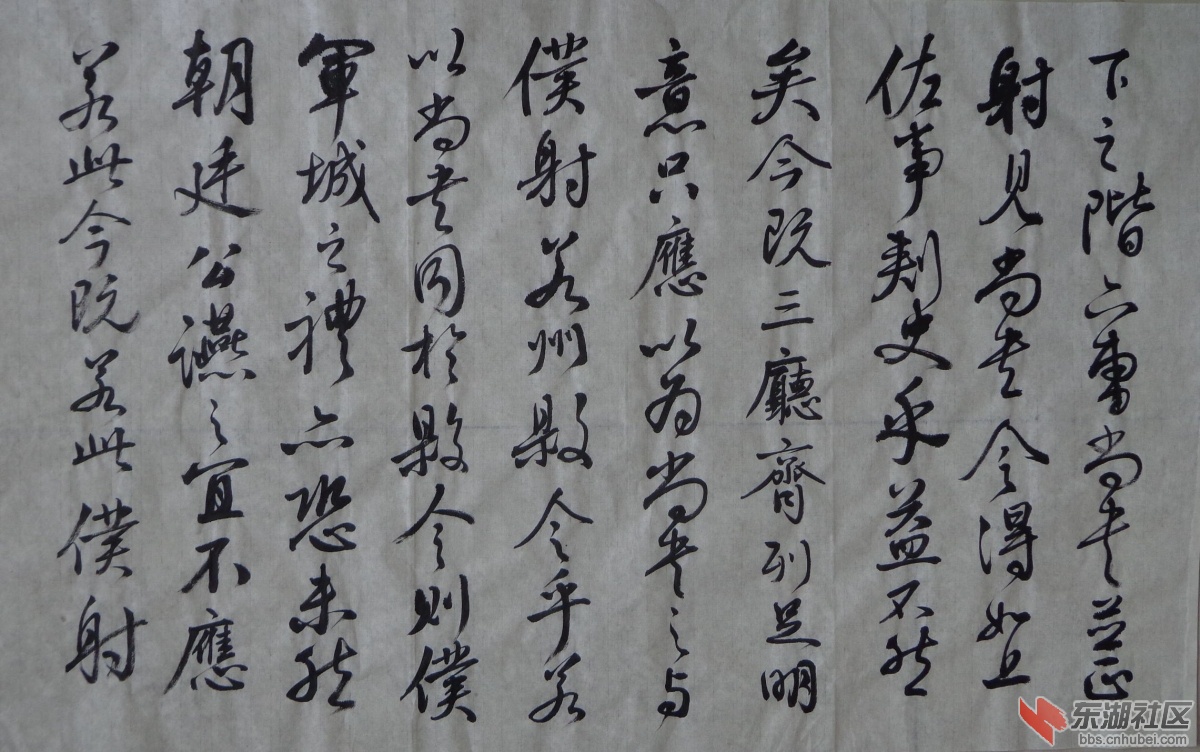 下之階六曹尚書並正
射見尚書令得如上
佐事刺史乎益不然
矣今既三廳齊列足明
意只應以為尚書之與
僕射若州縣令乎若
以尚書同於縣令則僕
軍城之禮亦恐未然
朝廷公讌之宜不應
若此今既若此僕射
东湖社区
bbs.cnhubei.com